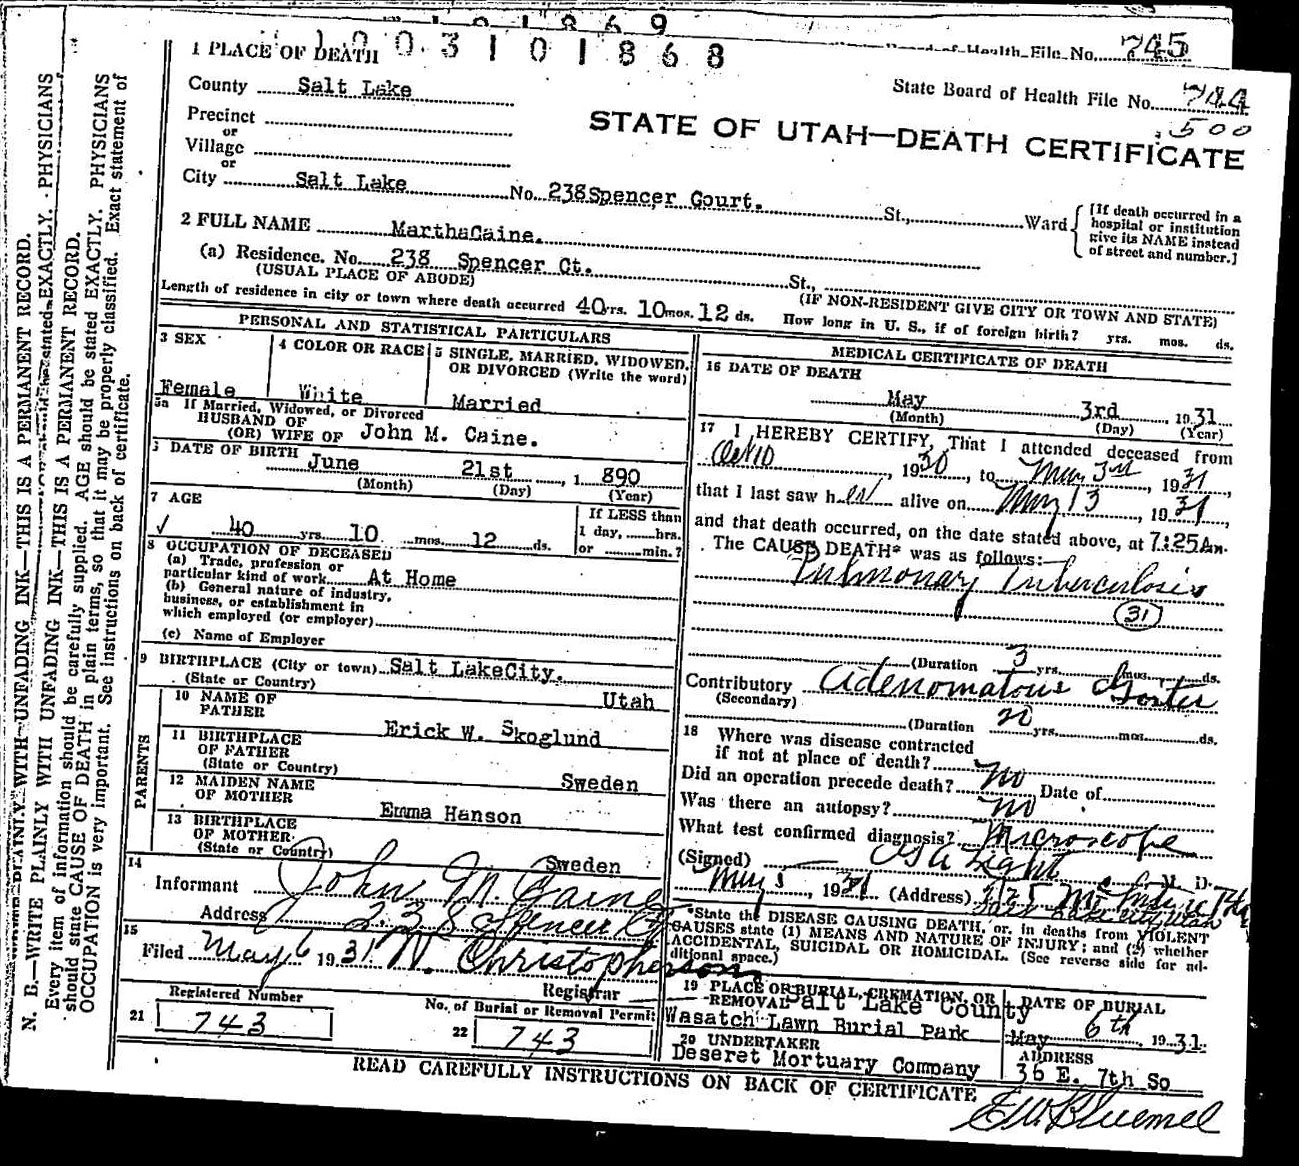 1 9 0 3 1 0 1 8 6 8
Board of Health File No. 745
1 PLACE OF DEATH
State Board of Health File No. 744
500
County Salt Lake
STATE OF UTAH—DEATH CERTIFICATE
Precinct
or
Village
or
City Salt Lake No. 238Spencer Court. St., Ward
[If death occurred in a hospital or institution give its NAME instead of street and number.]
2 FULL NAME MarthaCaine.
(a) Residence. No. 238 Spencer Ct. St.,
(USUAL PLACE OF ABODE) (IF NON-RESIDENT GIVE CITY OR TOWN AND STATE)
Length of residence in city or town where death occurred 40 yrs. 10 mos. 12 ds. How long in U. S., if of foreign birth? yrs. mos. ds.
PERSONAL AND STATISTICAL PARTICULARS
3 SEX Female
4 COLOR OR RACE White
5 SINGLE, MARRIED, WIDOWED, OR DIVORCED (Write the word) Married
5a If Married, Widowed, or Divorced
HUSBAND OF
(OR) WIFE OF John M. Caine.
6 DATE OF BIRTH June 21st 1 890
(Month) (Day) (Year)
7 AGE
✓ 40 yrs. 10 mos. 12 ds.
If LESS than
1 day, hrs.
or min.?
8 OCCUPATION OF DECEASED
(a) Trade, profession or
particular kind of work At Home
(b) General nature of industry,
business, or establishment in
which employed (or employer)
(c) Name of Employer
9 BIRTHPLACE (City or town) Salt LakeCity.
(State or Country) Utah
PARENTS
10 NAME OF FATHER Erick W. Skoglund
11 BIRTHPLACE OF FATHER
(State or Country) Sweden
12 MAIDEN NAME OF MOTHER Emma Hanson
13 BIRTHPLACE OF MOTHER
(State or Country) Sweden
14
Informant John M. Caine
Address 238 Spencer Ct
15
Filed May 6 1931 N. Christopherson
Registrar
Registered Number
21 743
No. of Burial or Removal Permit
22 743
MEDICAL CERTIFICATE OF DEATH
16 DATE OF DEATH
May 3rd, 1931
(Month) (Day) (Year)
17 I HEREBY CERTIFY, That I attended deceased from
Oct 10, 1930, to May 3rd, 1931,
that I last saw her alive on May 13, 1931,
and that death occurred, on the date stated above, at 7:25Am.
The CAUSE DEATH* was as follows:
Pulmonary Tuberculosis
31
(Duration 3 yrs. mos. ds.
Contributory Adenomatous Goiter
(Secondary)
(Duration 20 yrs. mos. ds.
18 Where was disease contracted
if not at place of death?
Did an operation precede death? No Date of
Was there an autopsy? No
What test confirmed diagnosis? Microscope
(Signed) Light M. D.
May 5, 1931 (Address) 325
*State the DISEASE CAUSING DEATH, or, in deaths from VIOLENT
CAUSES state (1) MEANS AND NATURE OF INJURY; and (2) whether
ACCIDENTAL, SUICIDAL OR HOMICIDAL. (See reverse side for ad-
ditional space.)
19 PLACE OR BURIAL, CREMATION, OR
REMOVAL Salt Lake County
Wasatch Lawn Burial Park
DATE OF BURIAL
May 6th, 1931.
20 UNDERTAKER
Deseret Mortuary Company
ADDRESS
36 E. 7th So
READ CAREFULLY INSTRUCTIONS ON BACK OF CERTIFICATE
E.W. Bluemel
N. B.—WRITE PLAINLY WITH UNFADING INK—THIS IS A PERMANENT RECORD.
Every item of information should be carefully supplied. AGE should be stated EXACTLY. PHYSICIANS
should state CAUSE OF DEATH in plain terms, so that it may be properly classified. Exact statement of
OCCUPATION is very important. See instructions on back of certificate.